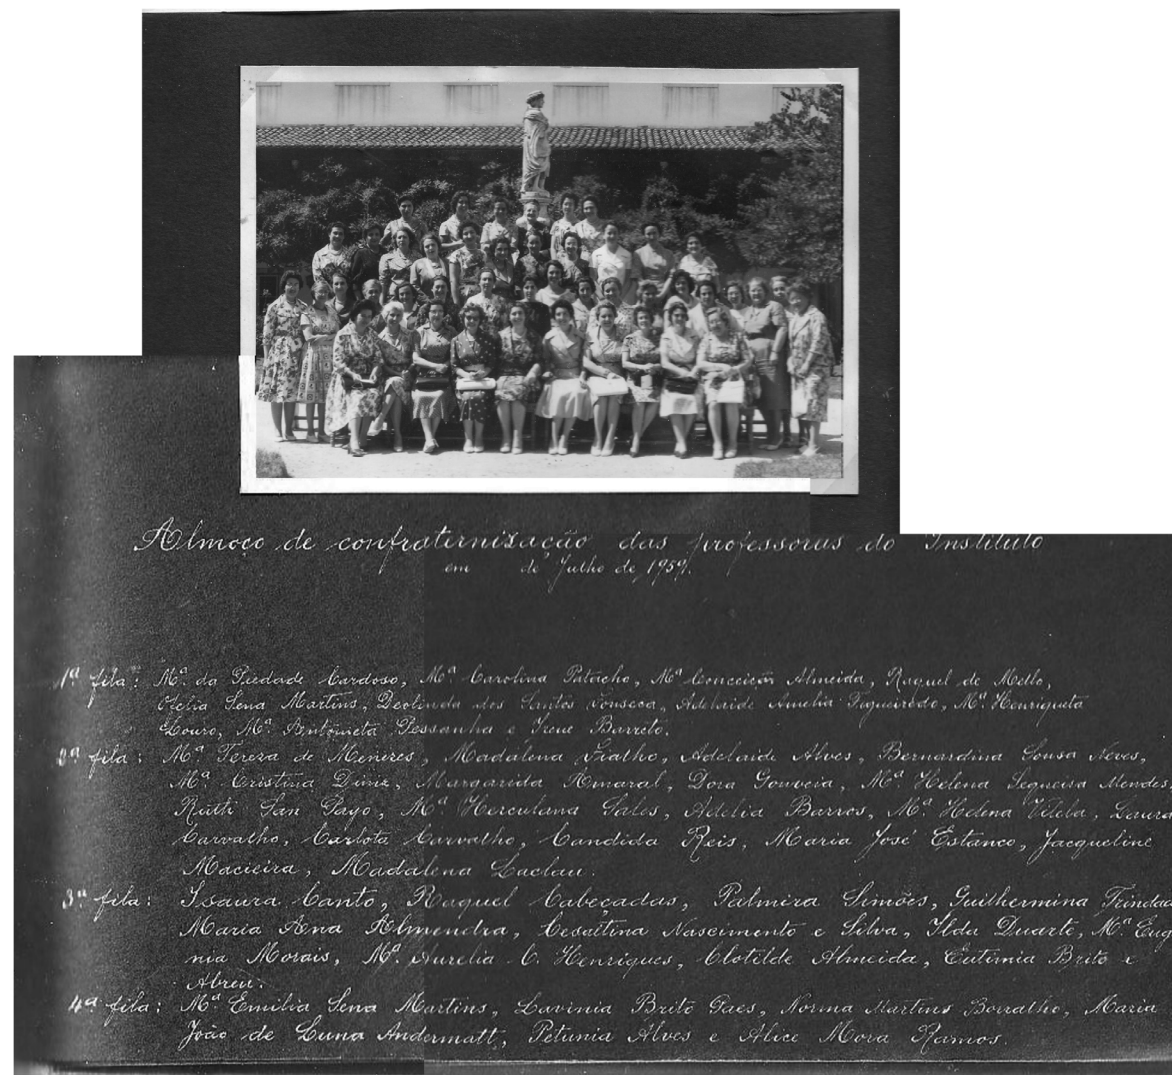 Almoço de confraternização das professoras do Instituto
em de Julho de 1959.
1ª fila: Mª da Piedade Cardoso, Mª Carolina Patacho, Mª Conceição Almeida, Raquel de Mello,
Ofélia Sena Martins, Deolinda dos Santos Fonseca, Adelaide Amelia Figueiredo, Mª Henriqueta
Louro, Mª Antonieta Pessanha e Irene Barreto.
2ª fila: Mª Tereza de Menezes, Madalena Fialho, Adelaide Alves, Bernardina Sousa Neves,
Mª Cristina Diniz, Margarida Amaral, Dora Gouveia, Mª Helena Sequeira Mendes
Ruth San Payo, Mª Herculana Sales, Adelia Barros, Mª Helena Vilela, Laura
Carvalho, Carlota Carvalho, Candida Reis, Maria José Estanco, Jacqueline
Macieira, Madalena Laclau.
3ª fila: Isaura Canto, Raquel Cabeçadas, Palmira Simões, Guilhermina Trindad
Maria Ana Almendra, Cesaltina Nascimento e Silva, Ilda Duarte, Mª Eug
nia Morais, Mª. Aurelia C. Henriques, Clotilde Almeida, Eutimia Brito e
Abreu.
4ª fila: Mª Emilia Sena Martins, Lavinia Brito Paes, Norma Martins Borralho, Maria
João de Luna Andermatt, Petunia Alves e Alice Mora Ramos.